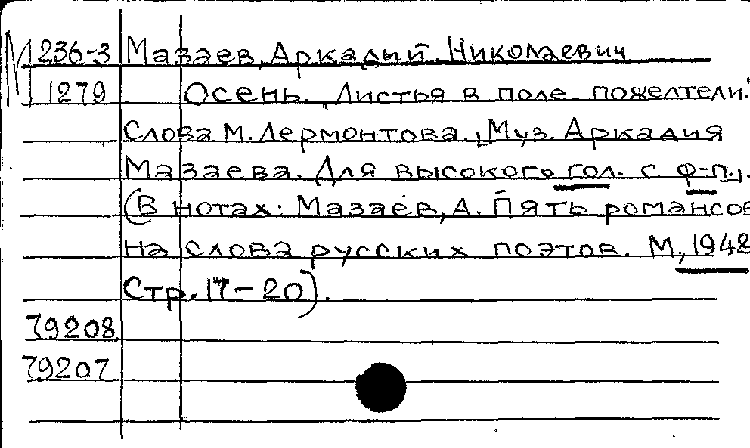 М 236-3 Мазаев, Аркадий Николаевич
1279 Осень. Листья в поле пожелтели.
Слова М. Лермонтова., Муз. Аркадия
Мазаева. Для высокого гол. с ф-п.,.
(В нотах: Мазаев, А. Пять романсов
на слова русских поэтов. М., 1948
Стр. 17-20).
79208
79207